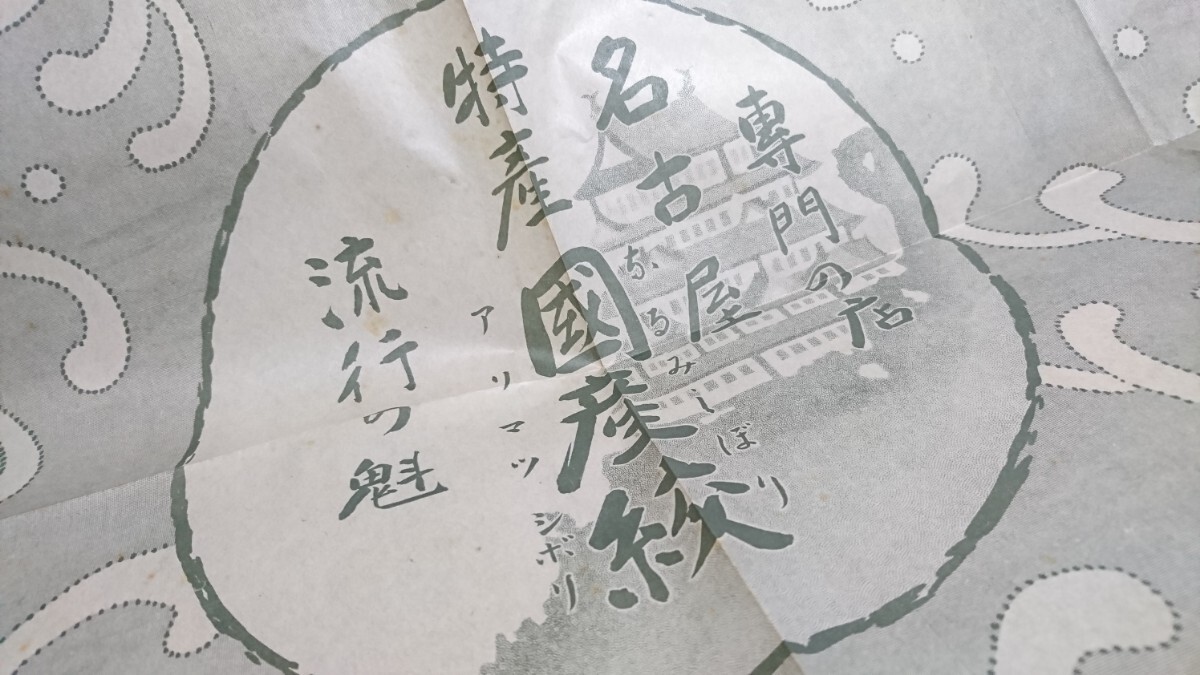 專門の店
名古屋
特産
なるみしぼり
國産絞
アリマツシボリ
流行の魁